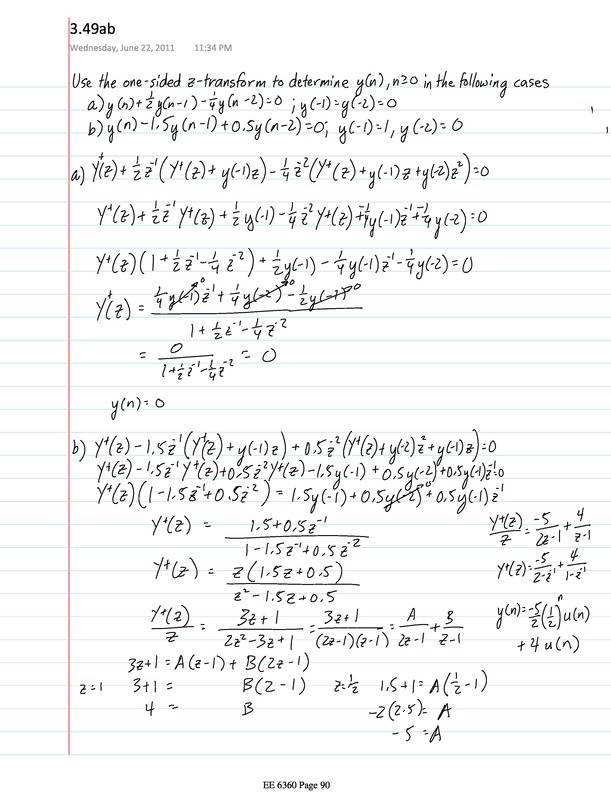 3.49ab
Wednesday, June 22, 2011 11:34 PM
Use the one-sided z-transform to determine y(n), n≥0 in the following cases
a) y(n)+½y(n-1)-¼y(n-2)=0 ; y(-1)=y(-2)=0
b) y(n)-1.5y(n-1)+0.5y(n-2)=0; y(-1)=1, y(-2)=0
a) Y⁺(z)+½z⁻¹(Y⁺(z)+y(-1)z)-¼z⁻²(Y⁺(z)+y(-1)z+y(-2)z²)=0
Y⁺(z)+½z⁻¹Y⁺(z)+½y(-1)-¼z⁻²Y⁺(z)-¼y(-1)z⁻¹-¼y(-2)=0
Y⁺(z)(1+½z⁻¹-¼z⁻²)+½y(-1)-¼y(-1)z⁻¹-¼y(-2)=0
Y⁺(z) = (¼y(-1)z⁻¹+¼y(-2)-½y(-1)) / (1+½z⁻¹-¼z⁻²)
= 0 / (1+½z⁻¹-¼z⁻²) = 0
y(n)=0
b) Y⁺(z)-1.5z⁻¹(Y⁺(z)+y(-1)z)+0.5z⁻²(Y⁺(z)+y(-2)z²+y(-1)z)=0
Y⁺(z)-1.5z⁻¹Y⁺(z)+0.5z⁻²Y⁺(z)-1.5y(-1)+0.5y(-2)+0.5y(-1)z⁻¹=0
Y⁺(z)(1-1.5z⁻¹+0.5z⁻²)=1.5y(-1)+0.5y(-2)+0.5y(-1)z⁻¹
Y⁺(z) = (1.5+0.5z⁻¹) / (1-1.5z⁻¹+0.5z⁻²)
Y⁺(z) = z(1.5z+0.5) / (z²-1.5z+0.5)
Y⁺(z)/z = (3z+1)/(2z²-3z+1) = (3z+1)/((2z-1)(z-1)) = A/(2z-1) + B/(z-1)
3z+1=A(z-1)+B(2z-1)
z=1 3+1= B(2-1) z=½ 1.5+1=A(½-1)
4 = B -2(2.5)=A
-5=A
Y⁺(z)/z = -5/(2z-1) + 4/(z-1)
Y⁺(z)= -5/(2-z⁻¹) + 4/(1-z⁻¹)
y(n)=-5/2(½)ⁿu(n)
+4u(n)
EE 6360 Page 90